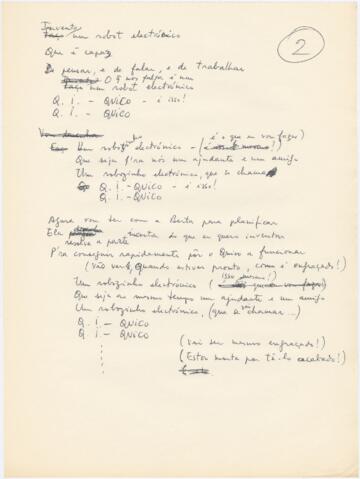 Invento
2
um robot electrónico
Que é capaz
De pensar, e de falar, e de trabalhar
O q nos fazia é um
um robot electrónico
Q. I. - QUICO - é isso!
Q. I. - QUICO
Um robozinho electrónico - (é o que eu vou fazer)
Que seja p'ra nós um ajudante e um amigo
Um robozinho electrónico, que se chama
Q. I. - QUICO - é isso!
Q. I. - QUICO
Agora vou ter com a Berta para planificar
Ela monta do que eu quero inventar
resolve a parte
P'ra conseguir rapidamente pôr o Quico a funcionar
(vão ver!, Quando estiver pronto, como é engraçado!)
Um robozinho electrónico (isso mesmo!)
Que seja ao mesmo tempo um ajudante e um amigo
Um robozinho electrónico, (que se vai chamar...)
Q. I. - QUICO
Q. I. - QUICO
(Vai ser mesmo engraçado!)
(Estou morta por tê-lo acabado!)